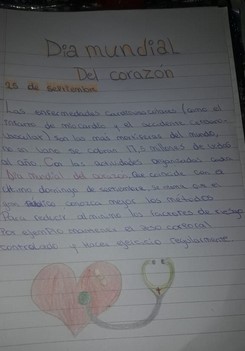 Dia mundial
Del corazón
25 de septiembre
Las enfermedades cardiovasculares (como el
infarto de miocardio y el accidente cerebro-
vascular) son las mas del mundo,
17,5 millones de vidas
al año. Con las actividades organizadas cada
Dia mundial del corazon Que coincide con
ultimo domingo de septiembre, la
que conozca mejor los métodos
Para reducir al los factores de riesgo
Por ejemplo mantener el peso corporal
controlado y hacer ejercicio regularmente